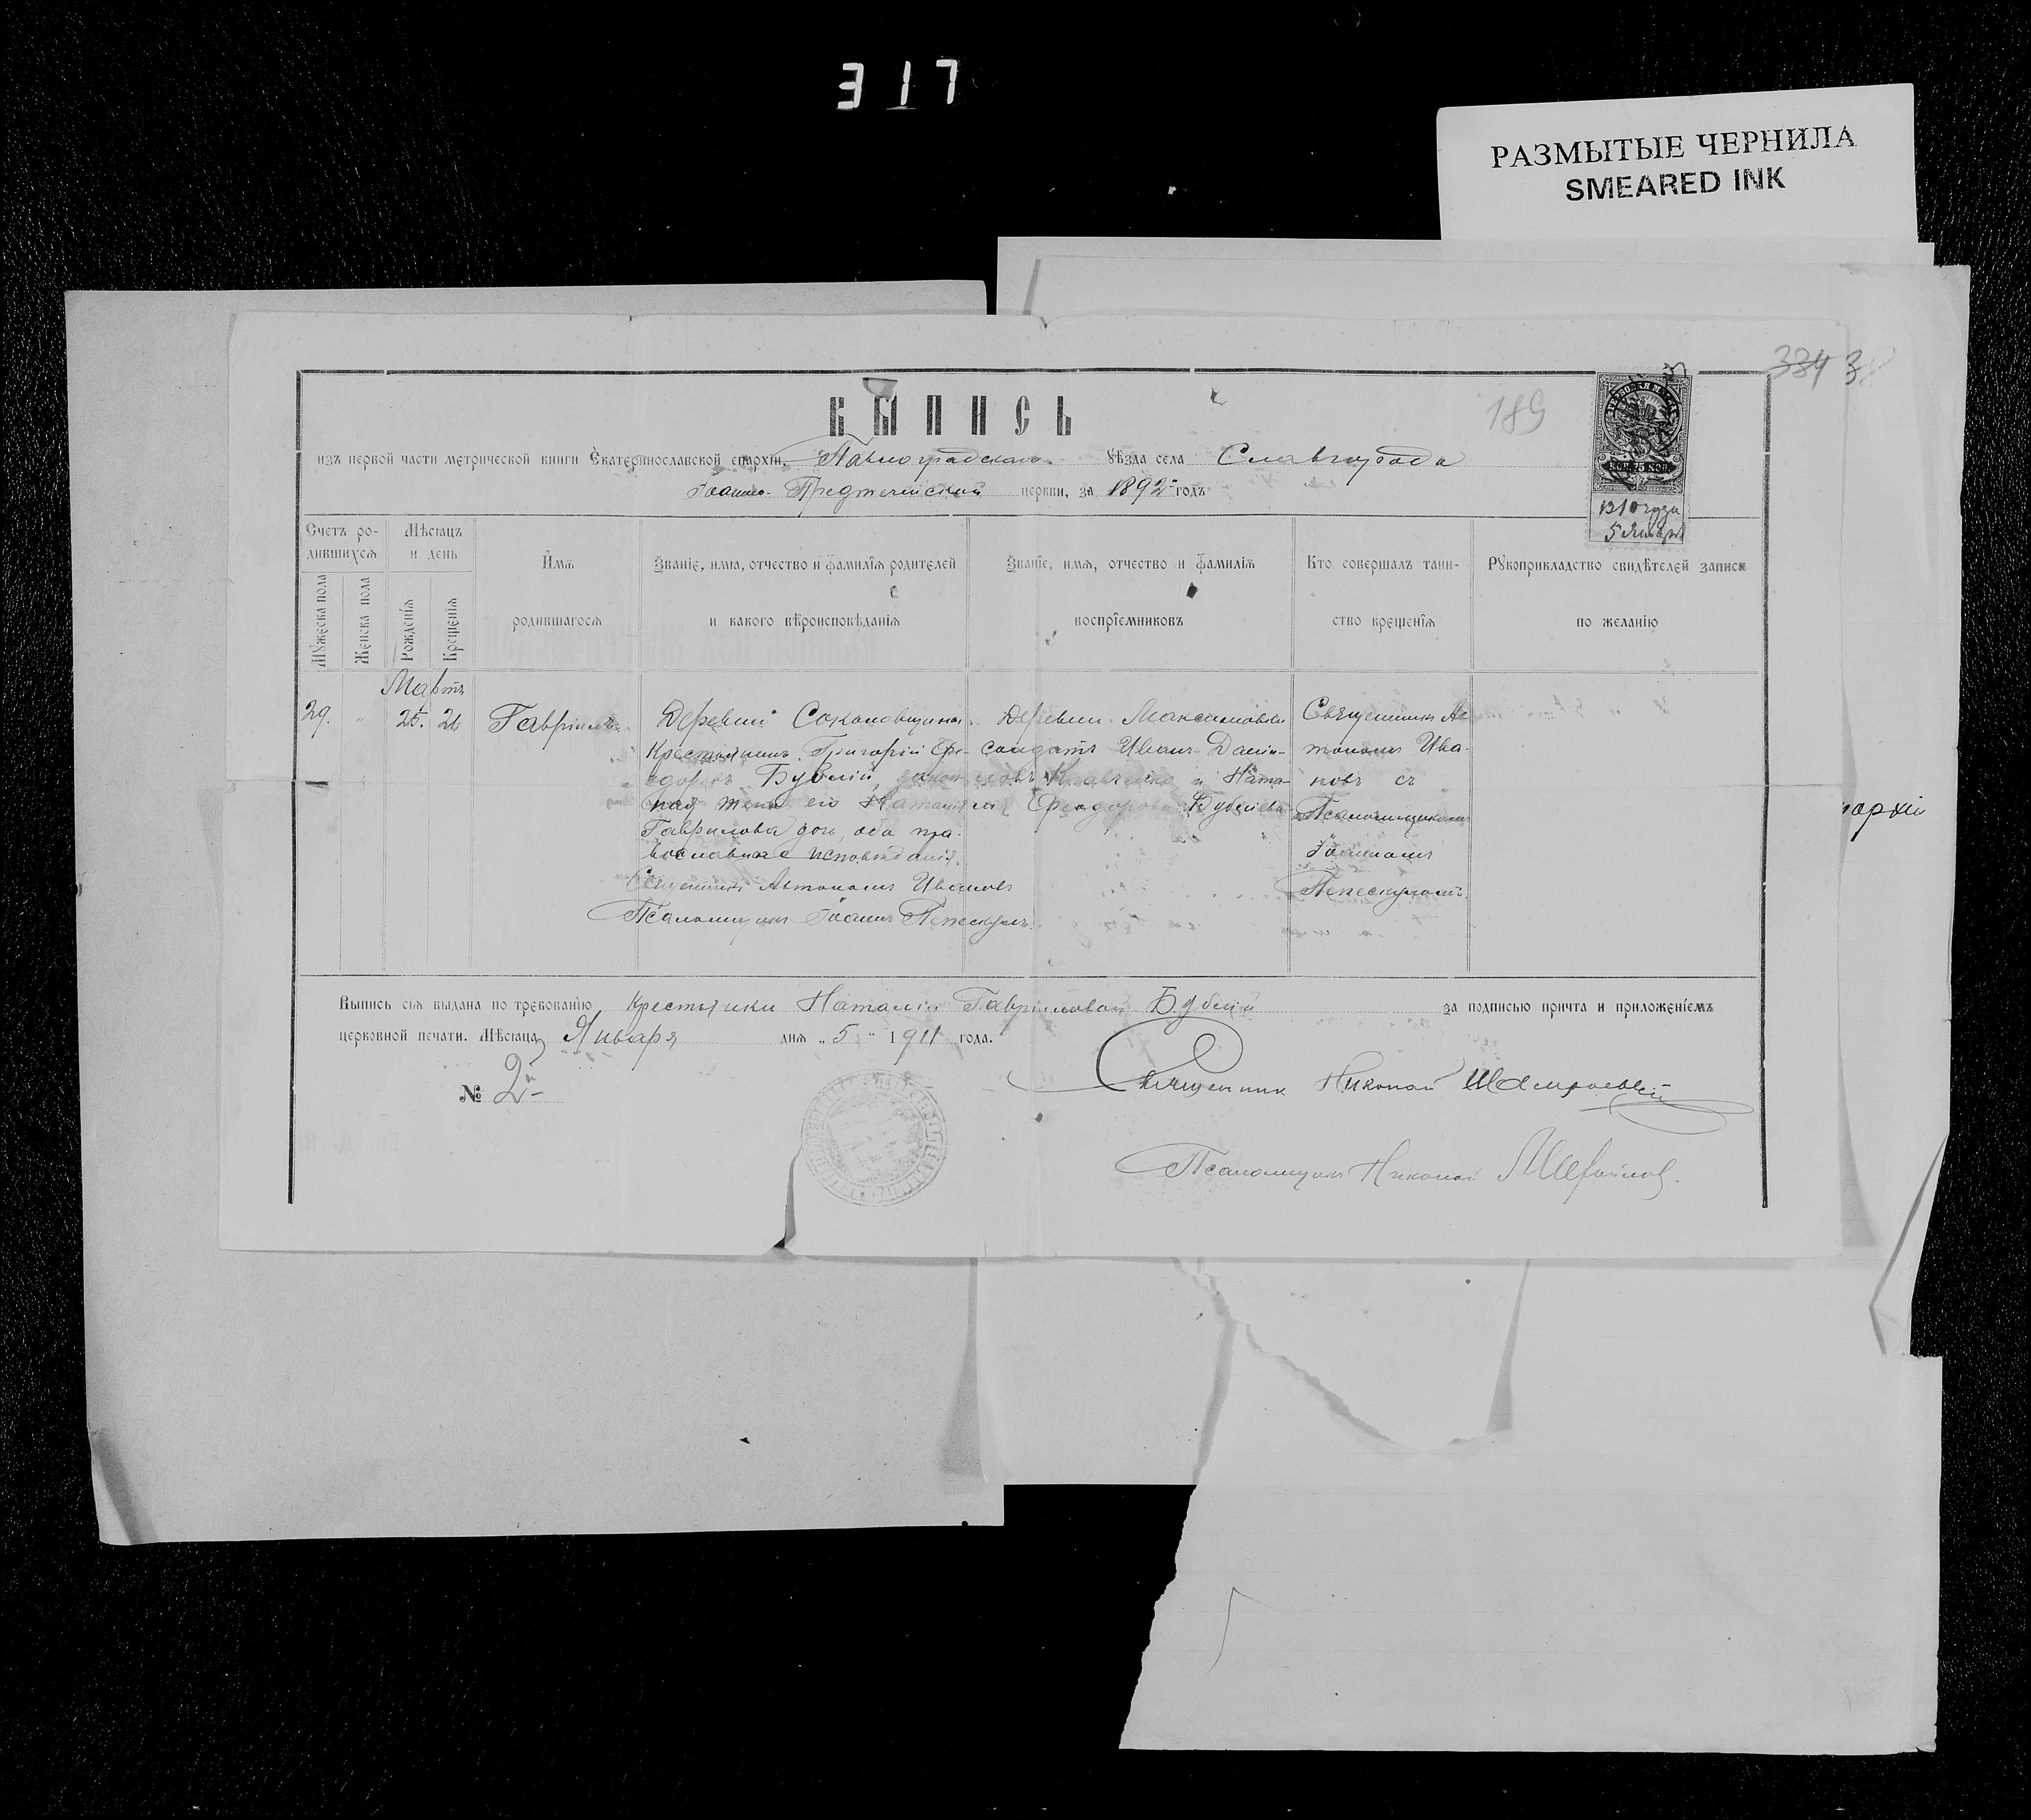 317
РАЗМЫТЫЕ ЧЕРНИЛА
SMEARED INK
334
189
ВЫПИСЬ
изъ первой части метрической книги Екатеринославской епархіи, Павлоградскаго уѣзда села Славгорода
Іоанно-Предтечинской церкви, за 1892 годъ
75 КОП
5 Января
Счетъ ро-
дившихся
Мѣсяцъ
и день
Мужеска пола
Женска пола
Рожденія
Крещенія
Имя
родившагося
Званіе, имя, отчество и фамилія родителей
и какого вѣроисповѣданія
Званіе, имя, отчество и фамилія
воспріемниковъ
Кто совершалъ таин-
ство крещенія
Рукоприкладство свидѣтелей записи
по желанію
Мартъ
29. " 25. 26 Гавріилъ
Деревни Соколовщины
крестьянинъ Григорій Ѳео-
доровъ Бублій, закон
ная жена его Наталія
Гаврилова дочь, оба пра-
вославнаго исповѣданія.
Священникъ Автономъ Ивановъ
Псаломщикъ Іоаннъ
Деревни Максимовки
солдатъ Иванъ Даніи-
ловъ Кравченко и Ната-
лія Ѳеодорова Бубліева
Священникъ Ав
тономъ Ива-
новъ съ
Псаломщикомъ
Іоанномъ
архіи
Выпись сія выдана по требованію крестьянки Наталіи Гавріиловой Бублій за подписью причта и приложеніемъ
церковной печати. Мѣсяца Января дня „5" 1911 года.
№ 2
Священникъ Николай
Псаломщикъ Николай